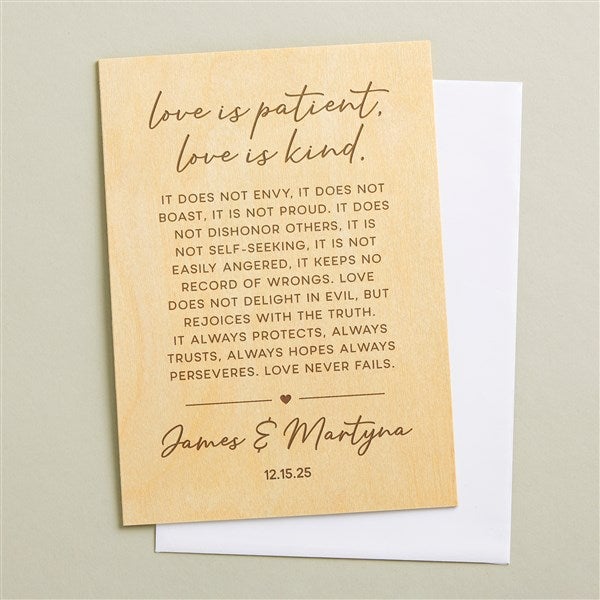 love is patient,
love is kind.
IT DOES NOT ENVY, IT DOES NOT
BOAST, IT IS NOT PROUD. IT DOES
NOT DISHONOR OTHERS, IT IS
NOT SELF-SEEKING, IT IS NOT
EASILY ANGERED, IT KEEPS NO
RECORD OF WRONGS. LOVE
DOES NOT DELIGHT IN EVIL, BUT
REJOICES WITH THE TRUTH.
IT ALWAYS PROTECTS, ALWAYS
TRUSTS, ALWAYS HOPES ALWAYS
PERSEVERES. LOVE NEVER FAILS.
James & Martyna
12.15.25